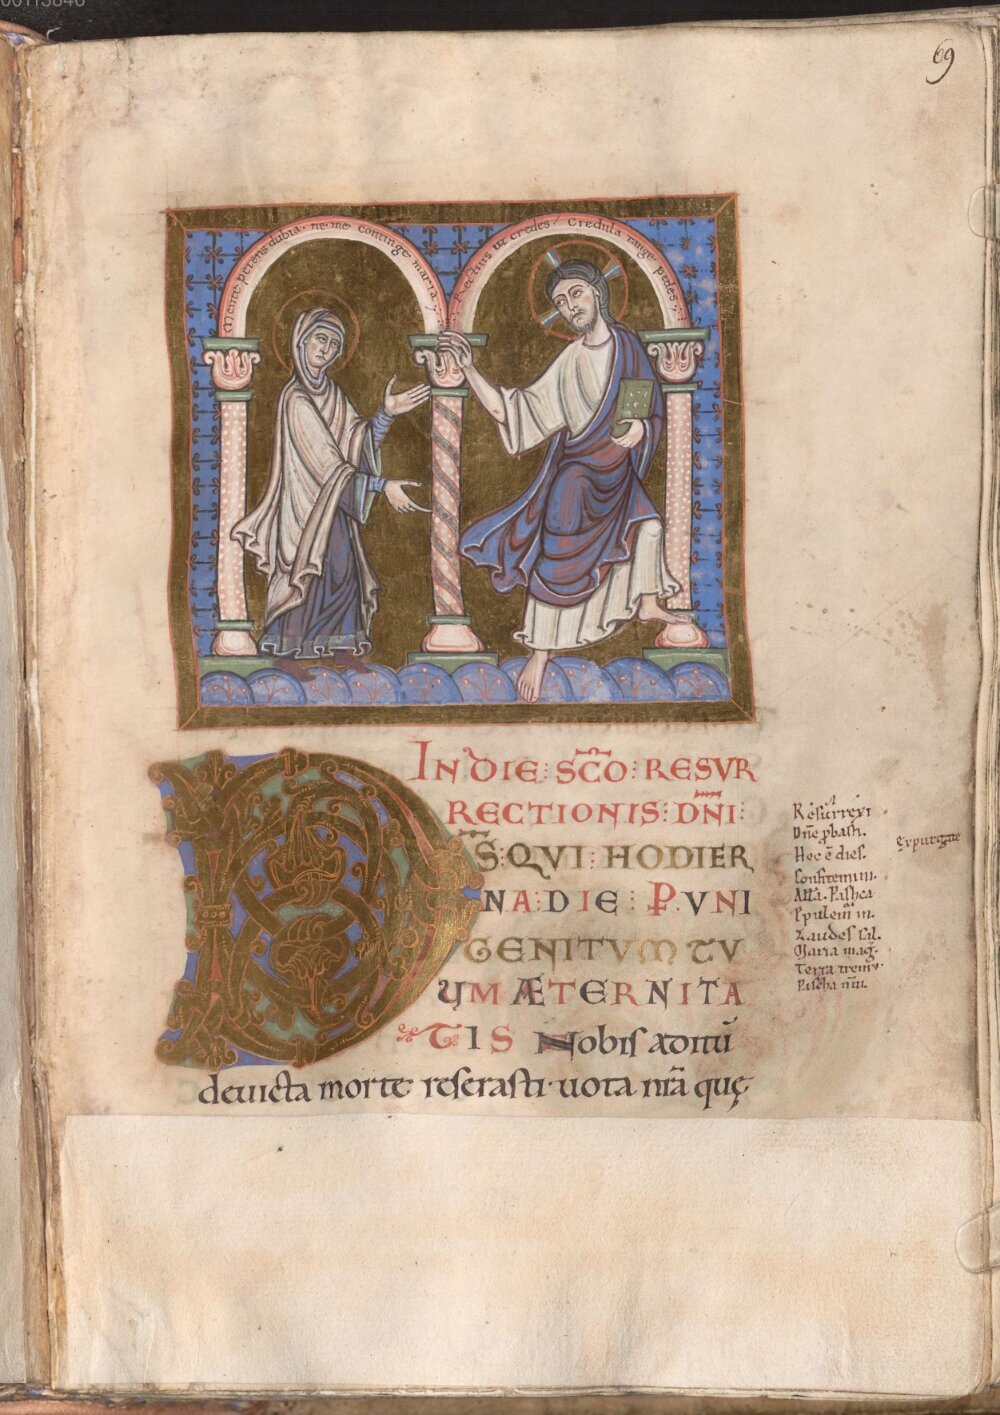 69
Mente petens dubia· ne me continge maria·
Rectius ut credes Credula tange pedes
IN DIE: SC̄O: RESVR
RECTIONIS: DN̄I:
DS̄: QVI: HODIER
NA: DIE: P̱: VNI
GENITVM TV
VM ÆTERNITA
TIS Nobis aditū
deuicta morte reserasti· uota nrā quę
Resurrexi
Dn̄e ꝓbasti.
Hec ē dies.
Confitemini.
All̄a. Pascha
Epulem̄ in.
Laudes sal.
Maria mag.
Terra tremu·
Pascha nr̄m.